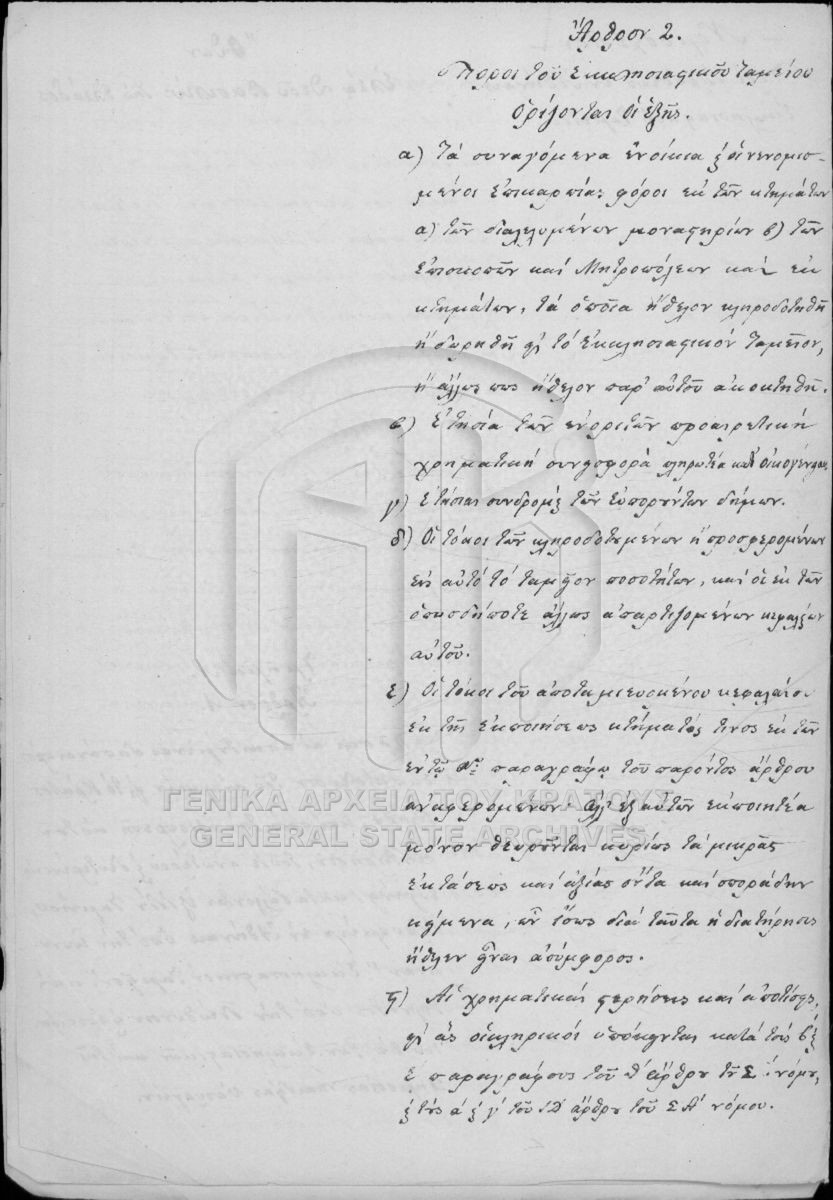 Ἄρθρον 2.
Πόροι τοῦ Ἐκκλησιαστικοῦ ταμείου
ὁρίζονται οἱ ἑξῆς.
α) Τὰ συναγόμενα ἐνοίκια & οἱ νενομισ-
μένοι ἐπικαρπίας φόροι ἐκ τῶν κτημάτων
α) τῶν διαλελυμένων μοναστηρίων β) τῶν
Ἐπισκοπῶν καὶ Μητροπόλεων καὶ ἐκ
κτημάτων, τὰ ὁποῖα ἤθελον κληροδοτηθῆ
ἢ δωρηθῆ εἰς τὸ ἐκκλησιαστικὸν ταμεῖον,
ἢ ἄλλως πως ἤθελον παρ' αὐτοῦ ἀποκτηθῆ.
β) Ἐτησία τῶν ἐνοριτῶν προαιρετικὴ
χρηματικὴ συνεισφορὰ πληρωτέα κατ' οἰκογένειαν.
γ) Ἐτήσιαι συνδρομαὶ τῶν εὐπορούντων δήμων.
δ) Οἱ τόκοι τῶν κληροδοτουμένων ἢ προσφερομένων
εἰς αὐτὸ τὸ ταμεῖον ποσοτήτων, καὶ οἱ ἐκ τῶν
ὁπωσδήποτε ἄλλως ἀπαρτιζομένων κεφαλαίων
αὐτοῦ.
ε) Οἱ τόκοι τοῦ ἀποταμιευομένου κεφαλαίου
ἐκ τῆς ἐκποιήσεως κτήματός τινος ἐκ τῶν
ἐν τῷ παραγράφῳ τοῦ παρόντος ἄρθρου
ἀναφερομένων· ἀλλ' ἐξ αὐτῶν ἐκποιητέα
μόνον θεωροῦνται κυρίως τὰ μικρᾶς
ἐκτάσεως καὶ ἀξίας ὄντα καὶ σποράδην
κείμενα, ὧν ἴσως διὰ ταῦτα ἡ διατήρησις
ἤθελεν εἶναι ἀσύμφορος.
ϛ) Αἱ χρηματικαὶ στερήσεις καὶ ἀποτίσεις,
εἰς ἃς οἱ κληρικοὶ ὑπόκεινται κατὰ τοὺς β &
ε παραγράφους τοῦ ἄρθρου τοῦ Σ νόμου,
& τοὺς α & γ τοῦ ΙΔ ἄρθρου τοῦ ΣΑ' νόμου.
ΓΕΝΙΚΑ ΑΡΧΕΙΑ ΤΟΥ ΚΡΑΤΟΥΣ
GENERAL STATE ARCHIVES